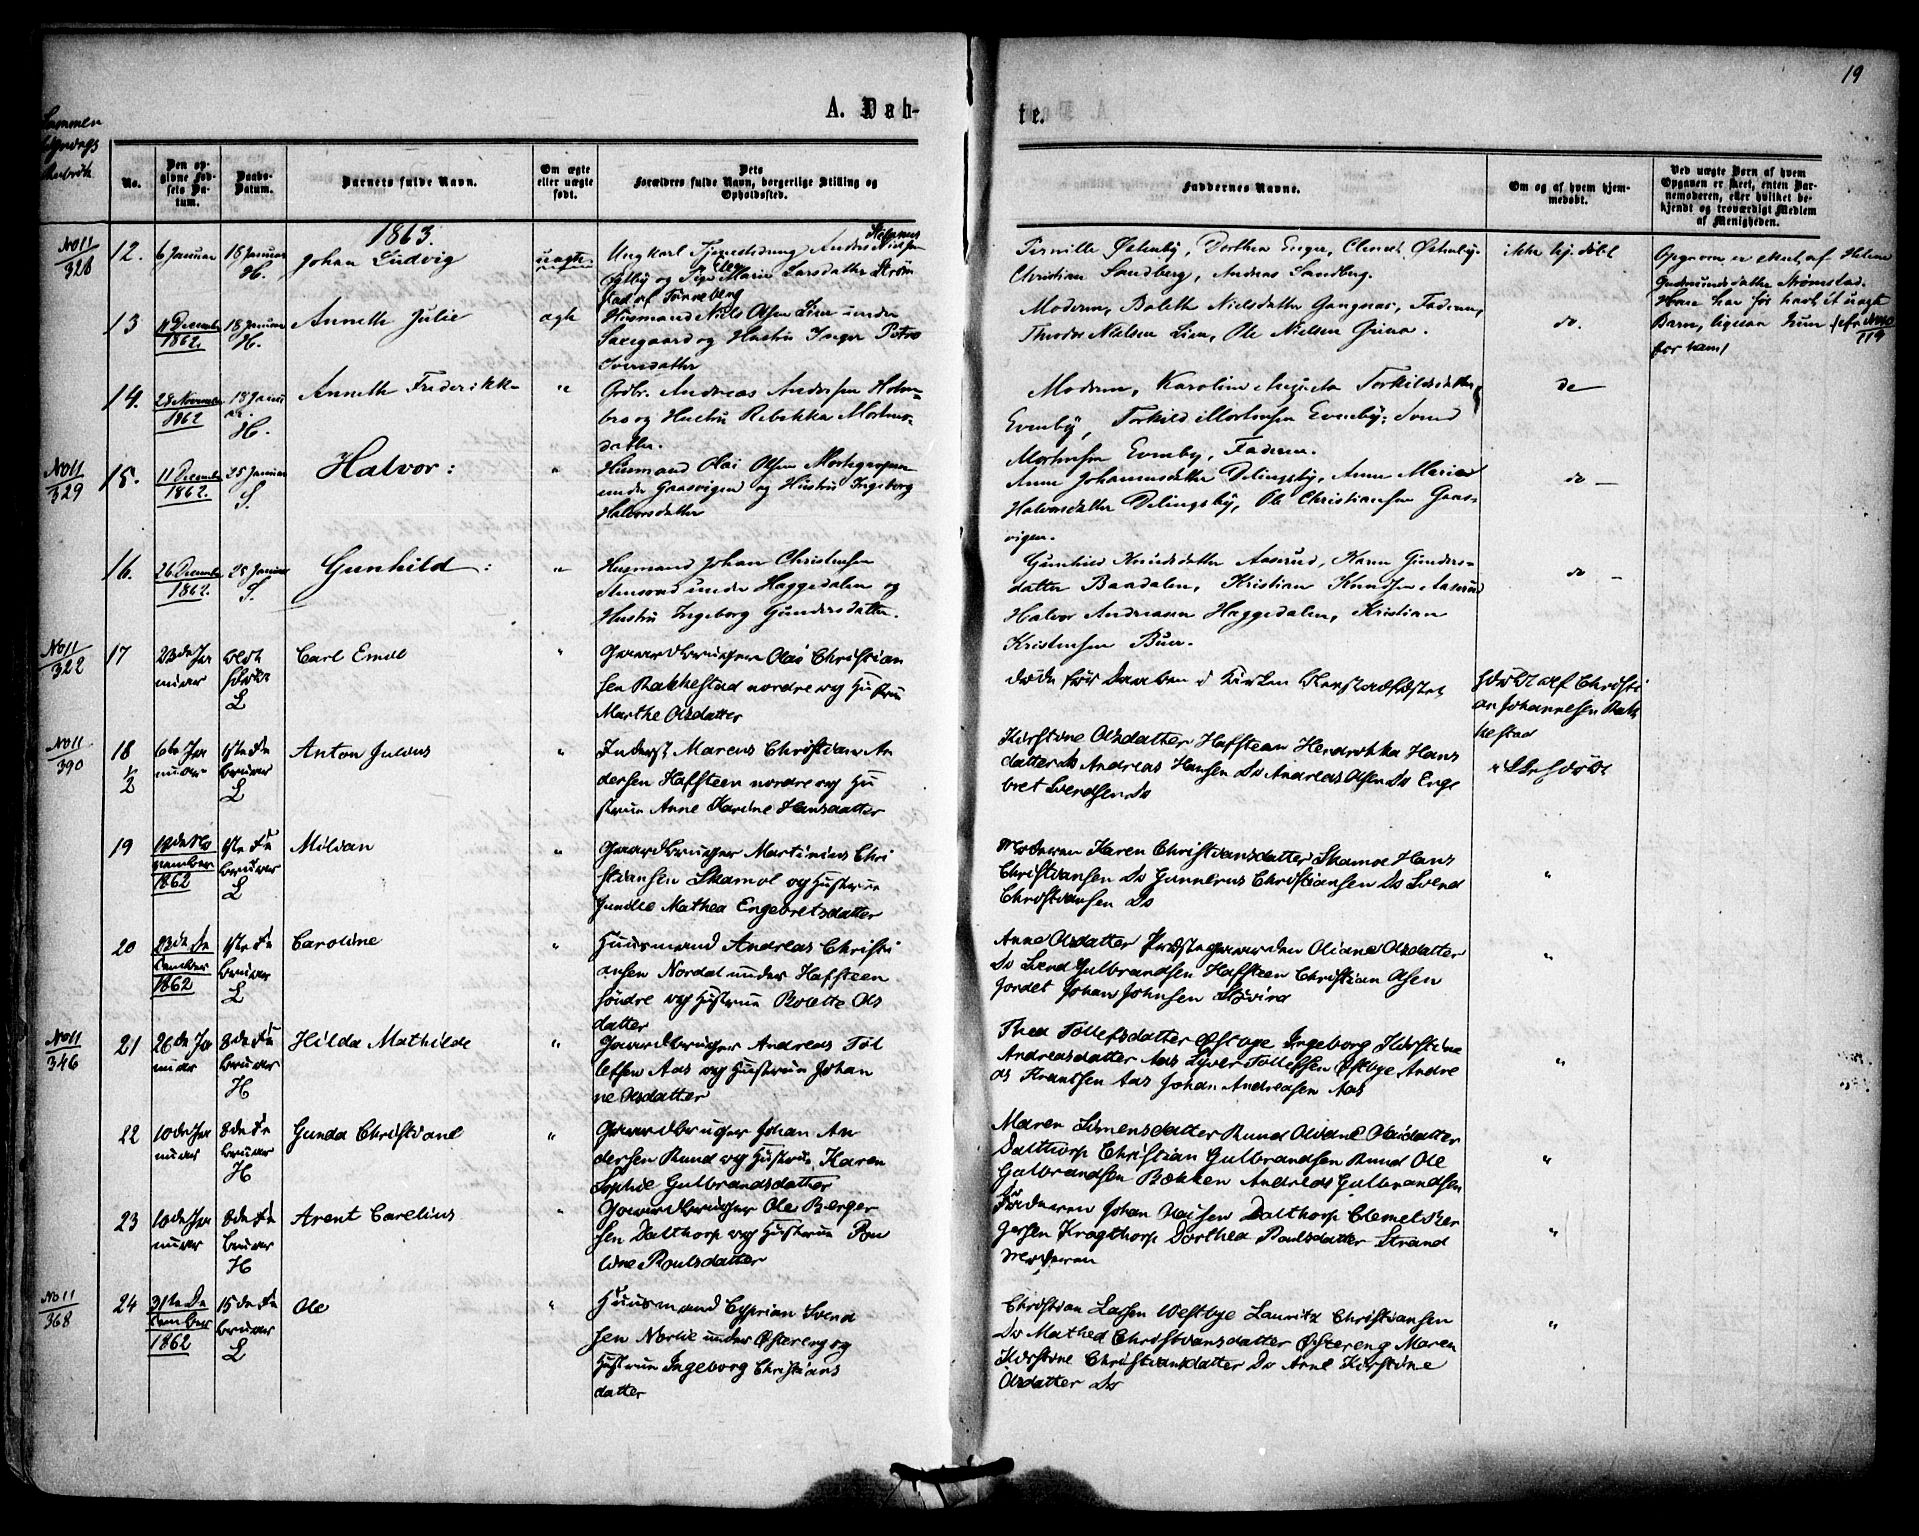 19
A. Døb-
te.
No.
Den op-
givne Fød-
sels Da-
tum.
Daabs-
Datum.
Barnets fulde Navn.
Om ægte
eller uægte
født.
Dets
Forældres fulde Navn, borgerlige Stilling og
Opholdssted.
Faddernes Navne.
Om og af hvem hjem-
medøbt.
Ved uægte Børn af hvem
Opgaven er skeet, enten Bar-
nemoderen, eller hvilket be-
kjendt og troværdigt Medlem
af Menigheden.
1863.
No 11
328
12.
6 Januar
18 Januar
H.
Johan Ludvig
uægte
Ungkarl
og Pige Marie Larsdatter
Christian Sandberg, Andreas Sandberg.
ikke hj. døbt
13
11 December
1862.
18 Januar
H.
Anneth Julie
ægte
Husmand Niels Olsen Lien under
og Hustru Inger Petro
Iversdatter
Moderen, Bolette Nielsdatter Gangnæs, Faderen,
Theodor Nielsen Lien, Ole Nielsen
do.
14.
28 November
1862
18 Janu
ar.
H.
Anneth Frederikke
"
Gdbr. Andreas Andersen Holm-
bro og Hustru Rebekka Mortens-
datter.
Moderen, Karoline Augusta Torkildsdatter
Evenby, Torkild Mortensen Evenby, Svend
Mortensen Evenby, Faderen.
do
No 11
329
15.
11 December
1862.
25 Januar
S.
Halvor:
"
Husmand Olai Olsen
under Gaasvigen og Hustru Ingeborg
Halvorsdatter
Anne Johannesdatter Delingsby, Anne Marie
Halvorsdatter Delingsby, Ole Christiansen Gaas-
vigen.
do
16.
26 December
1862.
25 Januar
S.
Gunhild:
"
Husmand Johan Christensen
under Haggedalen og
Hustru Ingeborg Gundersdatter.
Gunhild Knudsdatter Aaserud, Karen Gunders-
datter Baadalen, Kristian Knudsen Aaserud
Halvor Andreasen Haggedalen, Kristian
Kristensen Buer.
do
No 11
322
17
23de Ja
nuar
L
Carl Emil
"
Gaardbruger Olai Christian
sen Rakkestad nordre og Hustrue
Marthe Olsdatter
døde før Daaben i Kirken
Hdøbt af Christi
an Johannesen Rak
kestad
No 11
390
18
1/2
6te Ja
nuar
1ste Fe
bruar
L
Anton Julius
"
Inderst Marcus Christian An
dersen Hafsteen nordre og Hu
strue Anne Karine Hansdatter
Kirstine Olsdatter Hafsteen Hendrikka Hans
datter Do Andreas Hansen Do Andreas Olsen Do Enge
bret Svendsen Do
ikke Hdøbt
19
18de No
vember
1862
1ste Fe
bruar
L
Milvan
"
Gaardbruger Martinius Chri
stiansen Skamol og Hustrue
Jundle Mathea Engebretsdatter
Moderen Karen Christiansdatter Skamol Hans
Christiansen Do Gunnerus Christiansen Do Svend
Christiansen Do
"
20
23de De
cember
1862
1ste Fe
bruar
L
Caroline
"
Huusmand Andreas Christi
ansen Nordal under Hafsteen
søndre og Hustrue Bolette Ols
datter
Anne Olsdatter Præstegaarden Oliane Olsdatter
Do Svend Gulbrandsen Hafsteen Christian Olsen
Jordet Johan Johnsen
"
No 11
346
21
26de Ja
nuar
8de Fe
bruar
H
Hilda Mathilde
"
Gaardbruger Andreas Tol
lefsen Aas og Hustrue Johan
ne Olsdatter
Thea Tollefsdatter Østbye Ingeborg Kirstine
Andreasdatter Aas Syver Tollefsen Østbye Andre
as Frantsen Aas Johan Andreasen Aas
"
22
10de Ja
nuar
8de Fe
bruar
H
Gunda Christiane
"
Gaardbruger Johan An
dersen Rund og Hustrue Karen
Sophie Gulbrandsdatter
Maren Simensdatter Rund Oliane Olaidatter
Dalthorp Christian Gulbrandsen Rund Ole
Gulbrandsen Bækken Andreas Gulbrandsen
"
23
10de Ja
nuar
8de Fe
bruar
H
Arent Carelius
"
Gaardbruger Ole Børger
sen Dalthorp og Hustrue Pau
line Poulsdatter
Faderen Johan Olaisen Dalthorp Clemet Bør
gersen Kragthorp Dorthea Poulsdatter Strand
Moderen
"
No 11
368
24
31te De
cember
1862
15de Fe
bruar
L
Ole
"
Huusmand Cyprian Svend
sen Norlie under Østereng og
Hustrue Ingeborg Christians
datter
Christian Larsen Westbye Lauritz Christiansen
Do Mathea Christiansdatter Østereng Maren
Kirstine Christiansdatter Do Anne Kirstine
Olsdatter Do
"